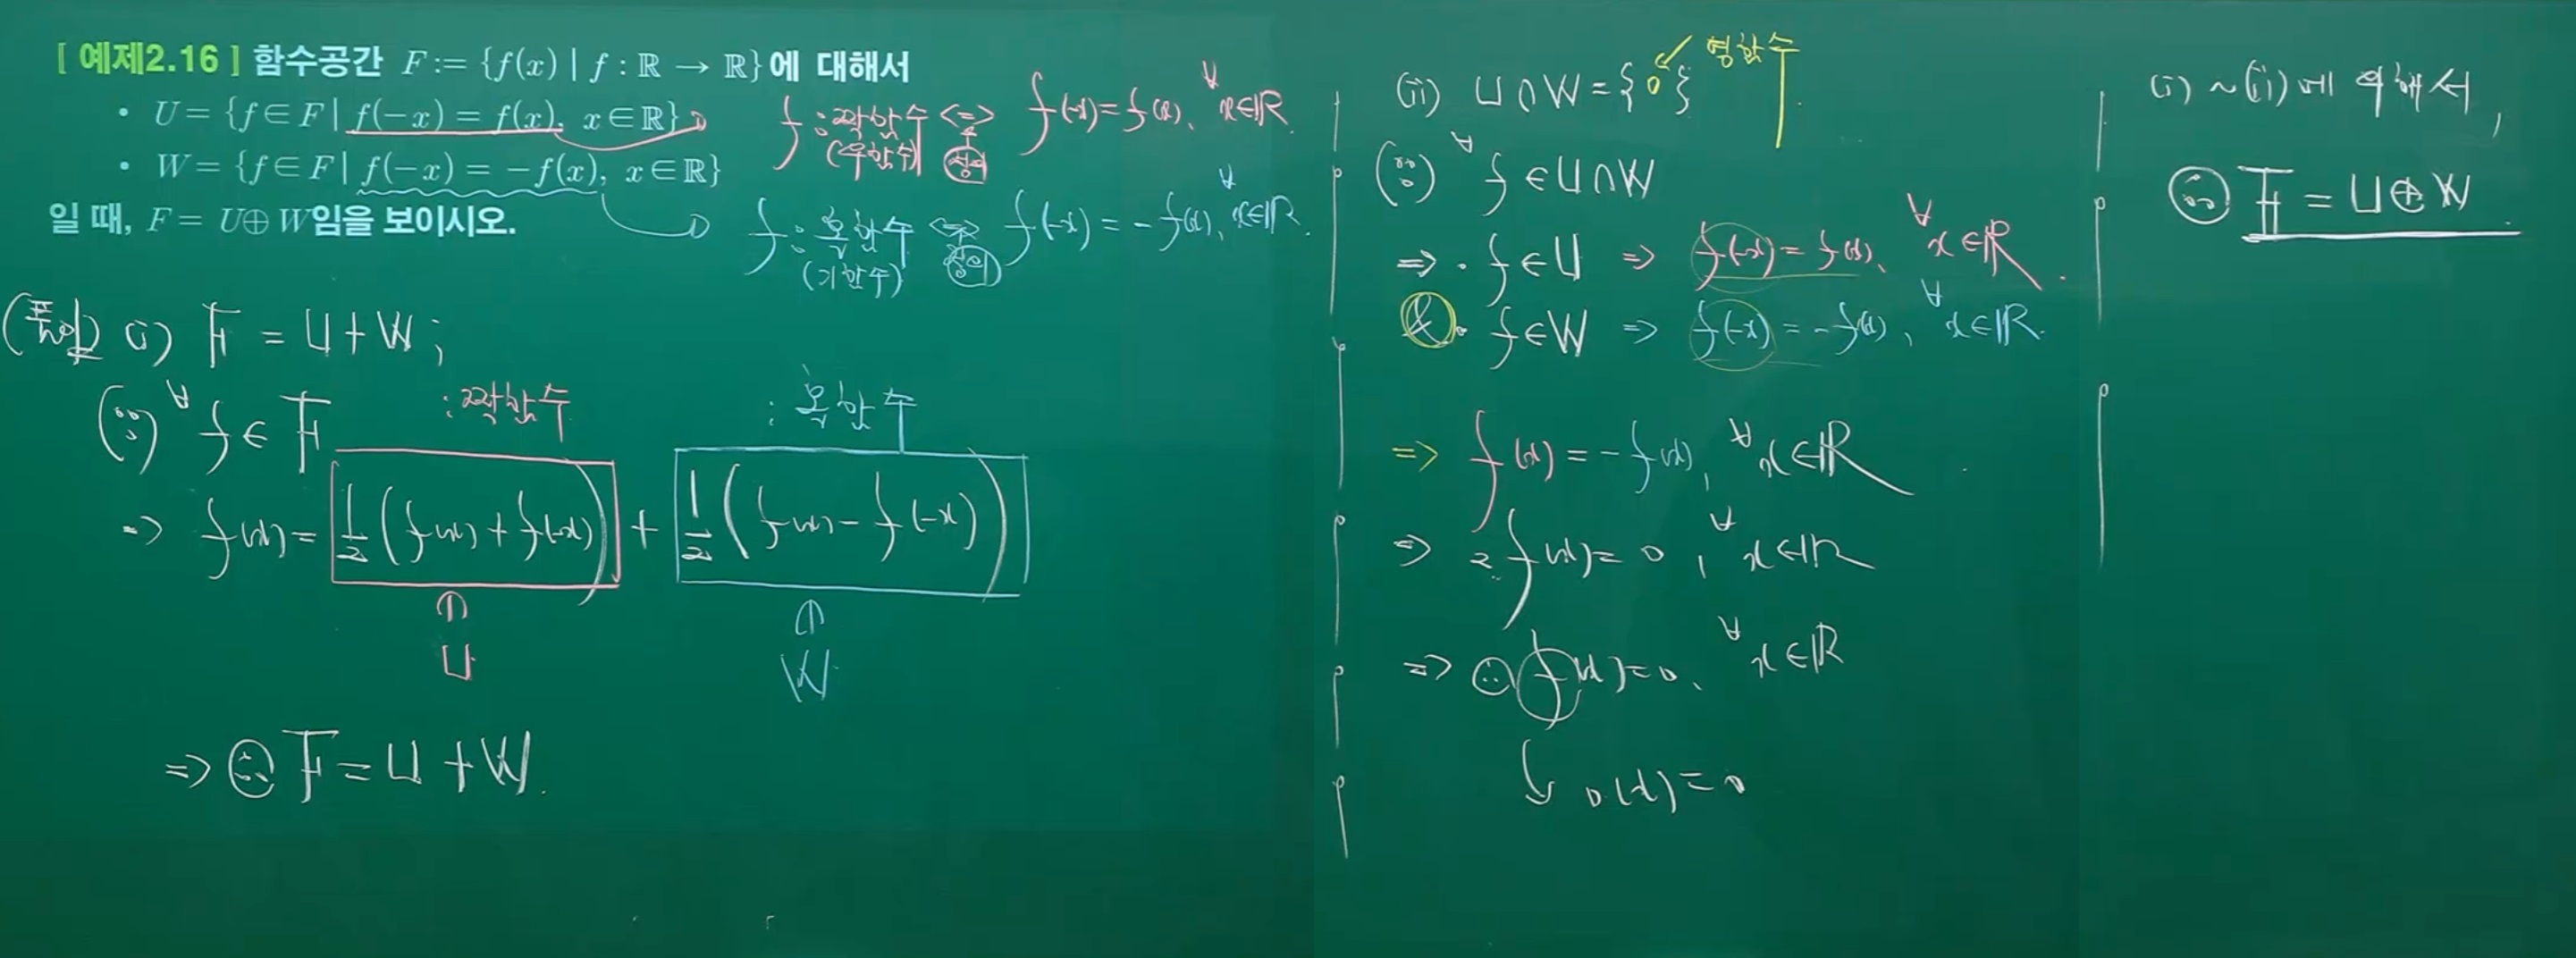 [ 예제2.16 ] 함수공간 F := {f(x) | f : ℝ → ℝ}에 대해서
• U = {f ∈ F | f(−x) = f(x), x ∈ ℝ}
• W = {f ∈ F | f(−x) = −f(x), x ∈ ℝ}
일 때, F = U⊕W임을 보이시오.
f : 짝함수 <=> f(-x) = f(x), ∀x∈ℝ.
(우함수) 정의
f : 홀함수 <=> f(-x) = -f(x), ∀x∈ℝ.
(기함수) 정의
(풀이) (i) F = U + W ;
(∵) ∀f ∈ F
: 짝함수 : 홀함수
=> f(x) = 1/2 (f(x) + f(-x)) + 1/2 (f(x) - f(-x))
∩ ∩
U W
=> ∴ F = U + W.
(ii) U ∩ W = {0} 영함수
(∵) ∀f ∈ U ∩ W
=> · f ∈ U => f(-x) = f(x), ∀x ∈ ℝ.
& · f ∈ W => f(-x) = -f(x), ∀x ∈ ℝ.
=> f(x) = -f(x), ∀x ∈ ℝ
=> 2f(x) = 0, ∀x ∈ ℝ
=> ∴ f(x) = 0, ∀x ∈ ℝ
0(x) = 0
(i) ~ (ii)에 의해서,
∴ F = U ⊕ W.